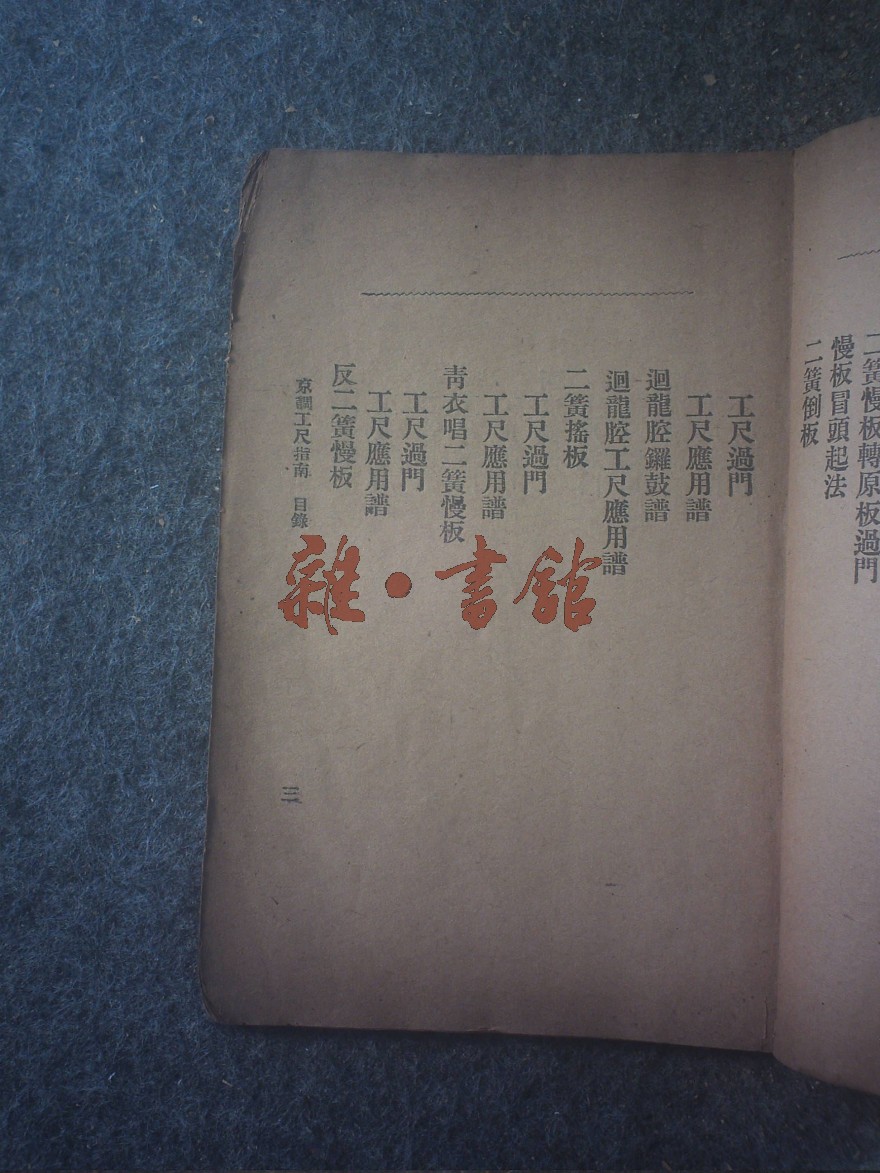 二簧慢板轉原板過門
慢板冒頭起法
二簧倒板
工尺過門
工尺應用譜
迴龍腔鑼鼓譜
迴龍腔工尺應用譜
二簧搖板
工尺過門
工尺應用譜
靑衣唱二簧慢板
工尺過門
工尺應用譜
反二簧慢板
京調工尺指南 目錄
三
雜·書館